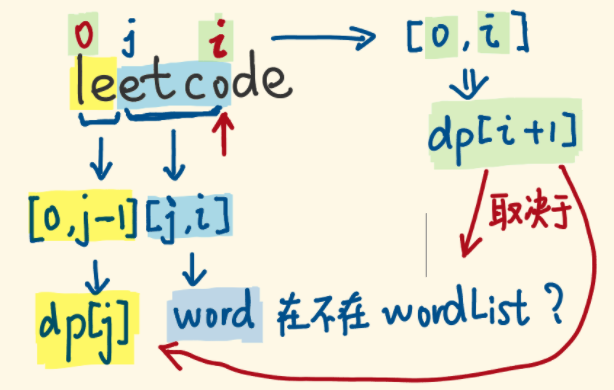 0 j i [0,i]
leetcode
dp[i+1]
取决于
[0,j-1] [j,i]
dp[j] word 在不在 wordList?